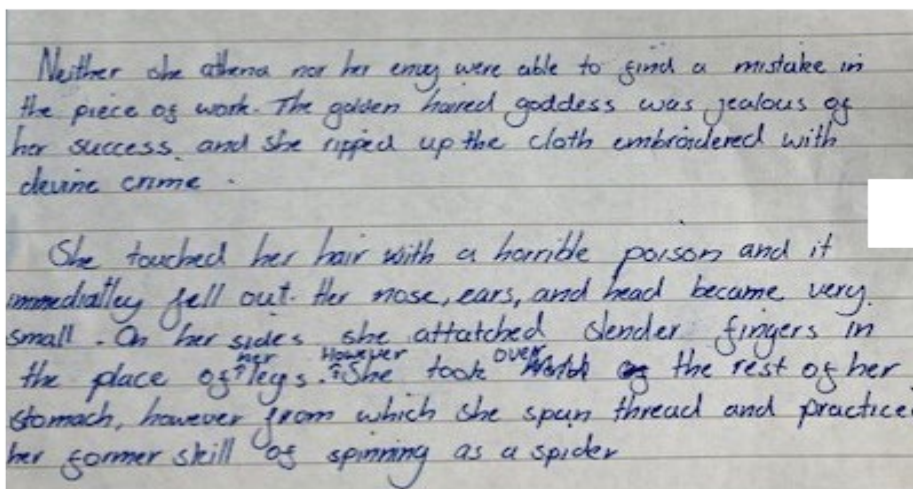 Neither she athena nor her envy were able to find a mistake in
the piece of work. The golden haired goddess was jealous of
her success, and she ripped up the cloth embroidered with
devine crime.
She touched her hair with a horrible poison and it
immediatley fell out. Her nose, ears, and head became very
small. On her sides she attatched slender fingers in
her However over
the place of legs. She took the rest of her
stomach, however from which she spun thread and practice
her former skill of spinning as a spider